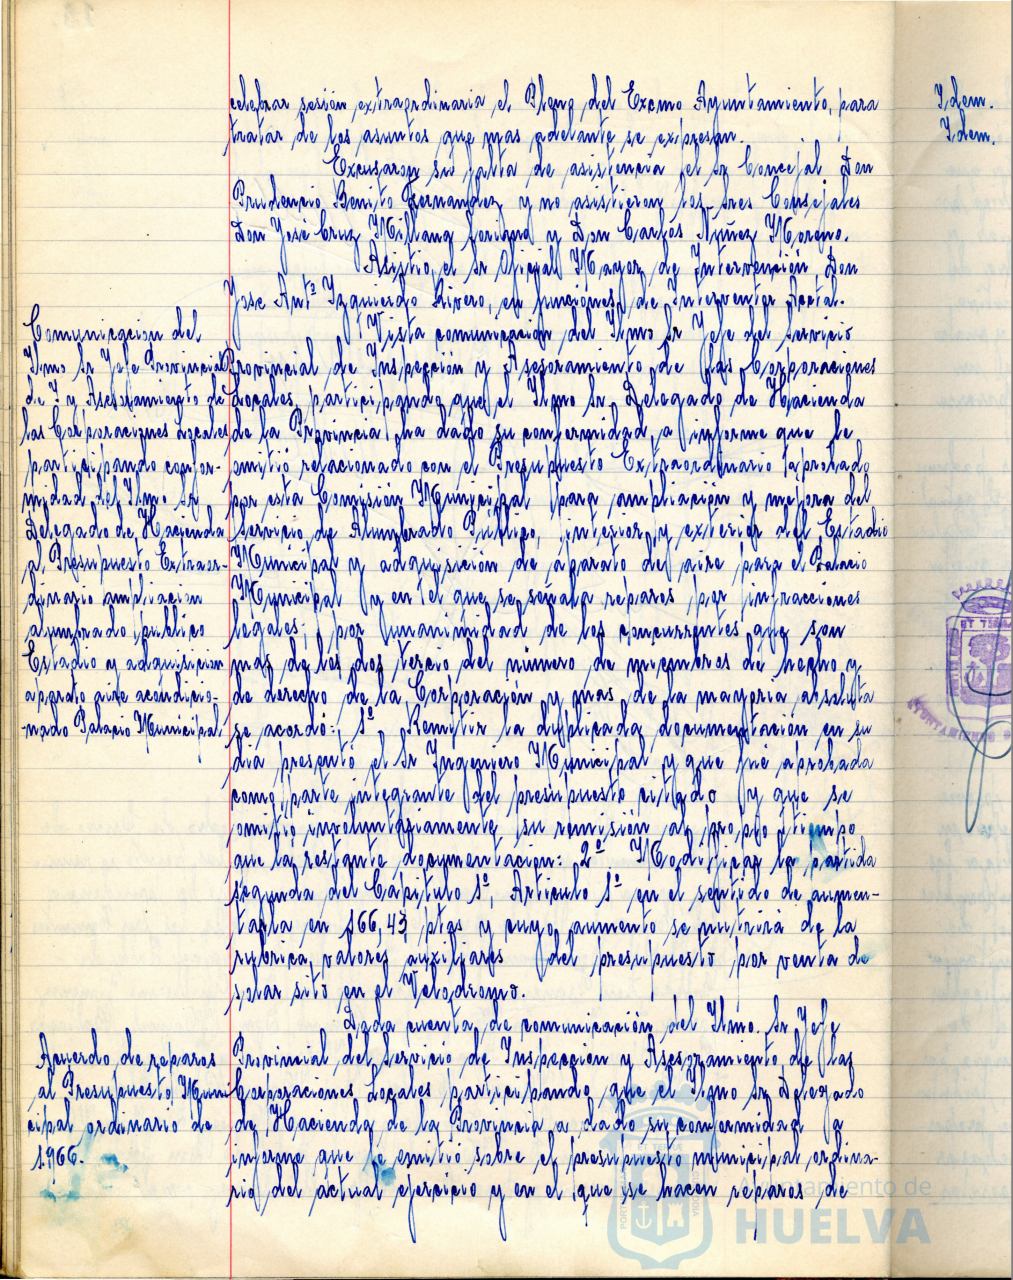 celebrar sesión extraordinaria el Pleno del Excmo Ayuntamiento, para
tratar de los asuntos que mas adelante se expresan.
Excusaron su falta de asistencia el Sr Concejal Don
Prudencio Benito Fernandez y no asistieron los Sres Consejales
Don José Cruz Millang y Don Carlos Núñez Moreno.
Asistio, el Sr Oficial Mayor de Intervención, Don
Jose Antº Izquierdo Rivero, en funciones de Interventor Acctal.
Vista comunicación del Ilmo Sr Jefe del Servicio
Provincial de Inspección y Asesoramiento de las Corporaciones
Locales, participando que el Ilmo Sr. Delegado de Hacienda
de la Provincia, ha dado su conformidad, a informe que le
emitió relacionado con el Presupuesto Extraordinario aprobado
por esta Comisión Municipal para ampliación y mejora del
servicio de Alumbrado Público, interior y exterior del Estadio
Municipal y adquisición de aparato de aire para el Palacio
Municipal y en el que se señala reparos por infracciones
legales; por unanimidad de los concurrentes que son
mas de los dos tercio del número de miembros de hecho y
de derecho de la Corporación y mas de la mayoria absoluta
se acordó: 1º Remitir la duplicada documentación en su
dia presentó el Sr Ingeniero Municipal y que fué aprobada
como parte integrante del presupuesto citado y que se
omitió involuntariamente su remisión al propio tiempo
que la restante documentación: 2º Modificar la partida
segunda del Capitulo 1º, Articulo 1º en el sentido de aumen-
tarla en 166,43 ptas y cuyo aumento se nutrirá de la
rubrica valores auxiliares del presupuesto por venta de
solar sito en el Velodromo.
Dada cuenta de comunicación del Ilmo. Sr Jefe
Provincial del Servicio de Inspección y Asesoramiento de las
Corporaciones Locales participando que el Ilmo Sr Delegado
de Hacienda de la Provincia a dado su conformidad a
informe que le emitió sobre el presupuesto municipal ordina-
rio del actual ejercicio y en el que se hacen reparos de
Comunicacion del
Ilmo Sr Jefe Provincial
de I y Asesoramiento de
las Corporaciones Locales
participando confor-
midad del Ilmo Sr
Delegado de Hacienda
al Presupuesto Extraor-
dinario ampliacion
alumbrado publico
Estadio y adquisicion
aparato aire acondicio-
nado Palacio Municipal
Acuerdo de reparos
al Presupuesto Muni
cipal ordinario de
1966.
Idem.
Idem.
Ayuntamiento de
HUELVA